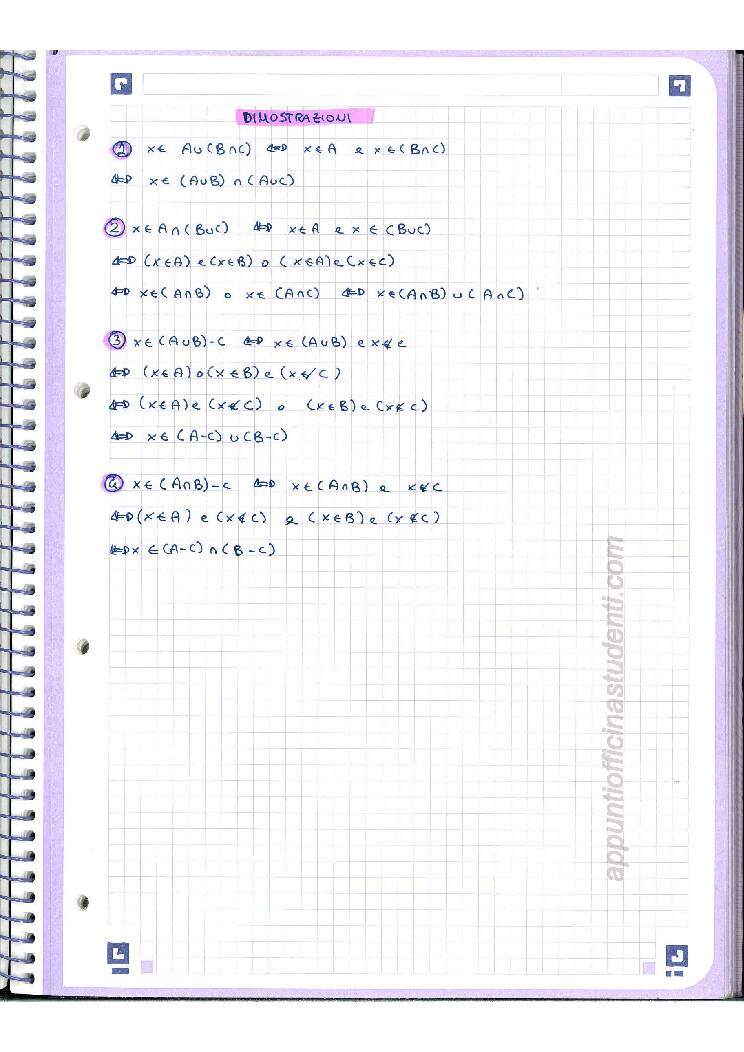 DIMOSTRAZIONI
1 x∈ A∪(B∩C) ⇔ x∈A e x∈(B∩C)
⇔ x∈ (A∪B) ∩ (A∪C)
2 x∈A∩(B∪C) ⇔ x∈A e x ∈ (B∪C)
⇔ (x∈A) e (x∈B) o (x∈A) e (x∈C)
⇔ x∈(A∩B) o x∈ (A∩C) ⇔ x∈(A∩B) ∪ (A∩C)
3 x∈(A∪B)-C ⇔ x∈(A∪B) e x∉C
⇔ (x∈A) o (x∈B) e (x∉C)
⇔ (x∈A) e (x∉C) o (x∈B) e (x∉C)
⇔ x∈(A-C) ∪ (B-C)
4 x∈(A∩B)-C ⇔ x∈(A∩B) e x∉C
⇔ (x∈A) e (x∉C) e (x∈B) e (x∉C)
⇔ x ∈(A-C) ∩ (B-C)
appuntiofficinastudenti.com